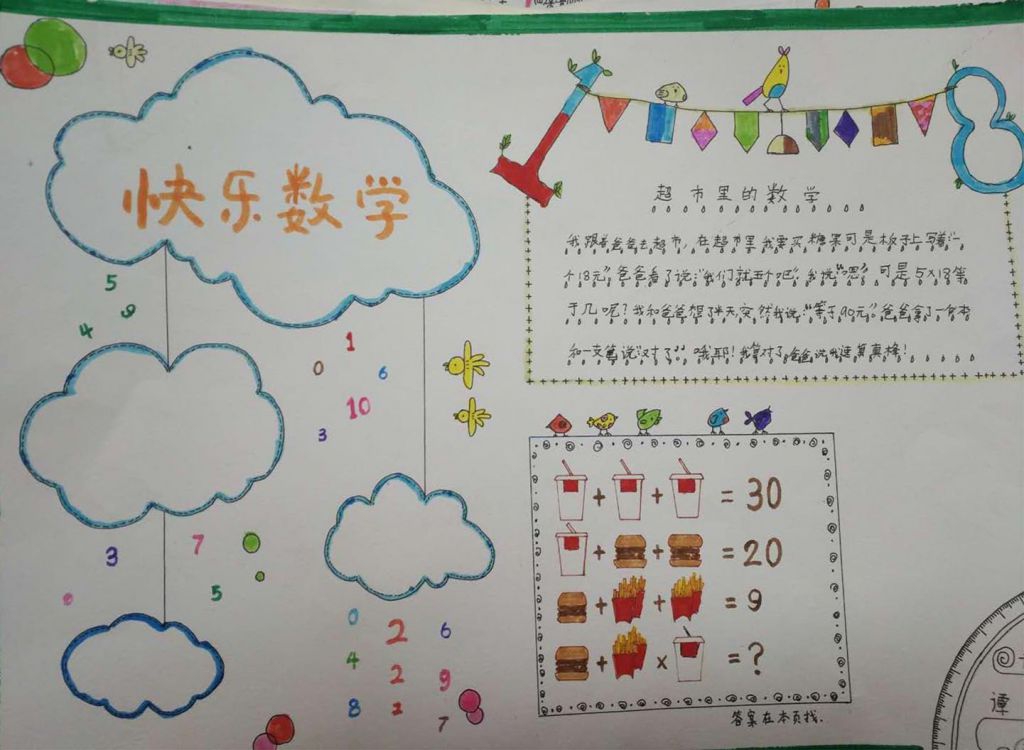 快乐数学
5
9
4
1
0
6
10
3
3
7
5
0
0
2
6
4
2
9
8
2
7
1 8
超市里的数学
我跟着爸爸去超市,在超市里我要买糖果可是板子上写着:一
个18元”爸爸看了说:“我们就五个吧”我说“嗯”可是5×18等
于几呢?我和爸爸想了半天,突然我说:“等于90元”爸爸拿了一个本
和一支笔说对了。哦耶!我算对了,爸爸说我逑真棒!
+ + = 30
+ + = 20
+ + = 9
+ × = ?
答案在本页找.
谭